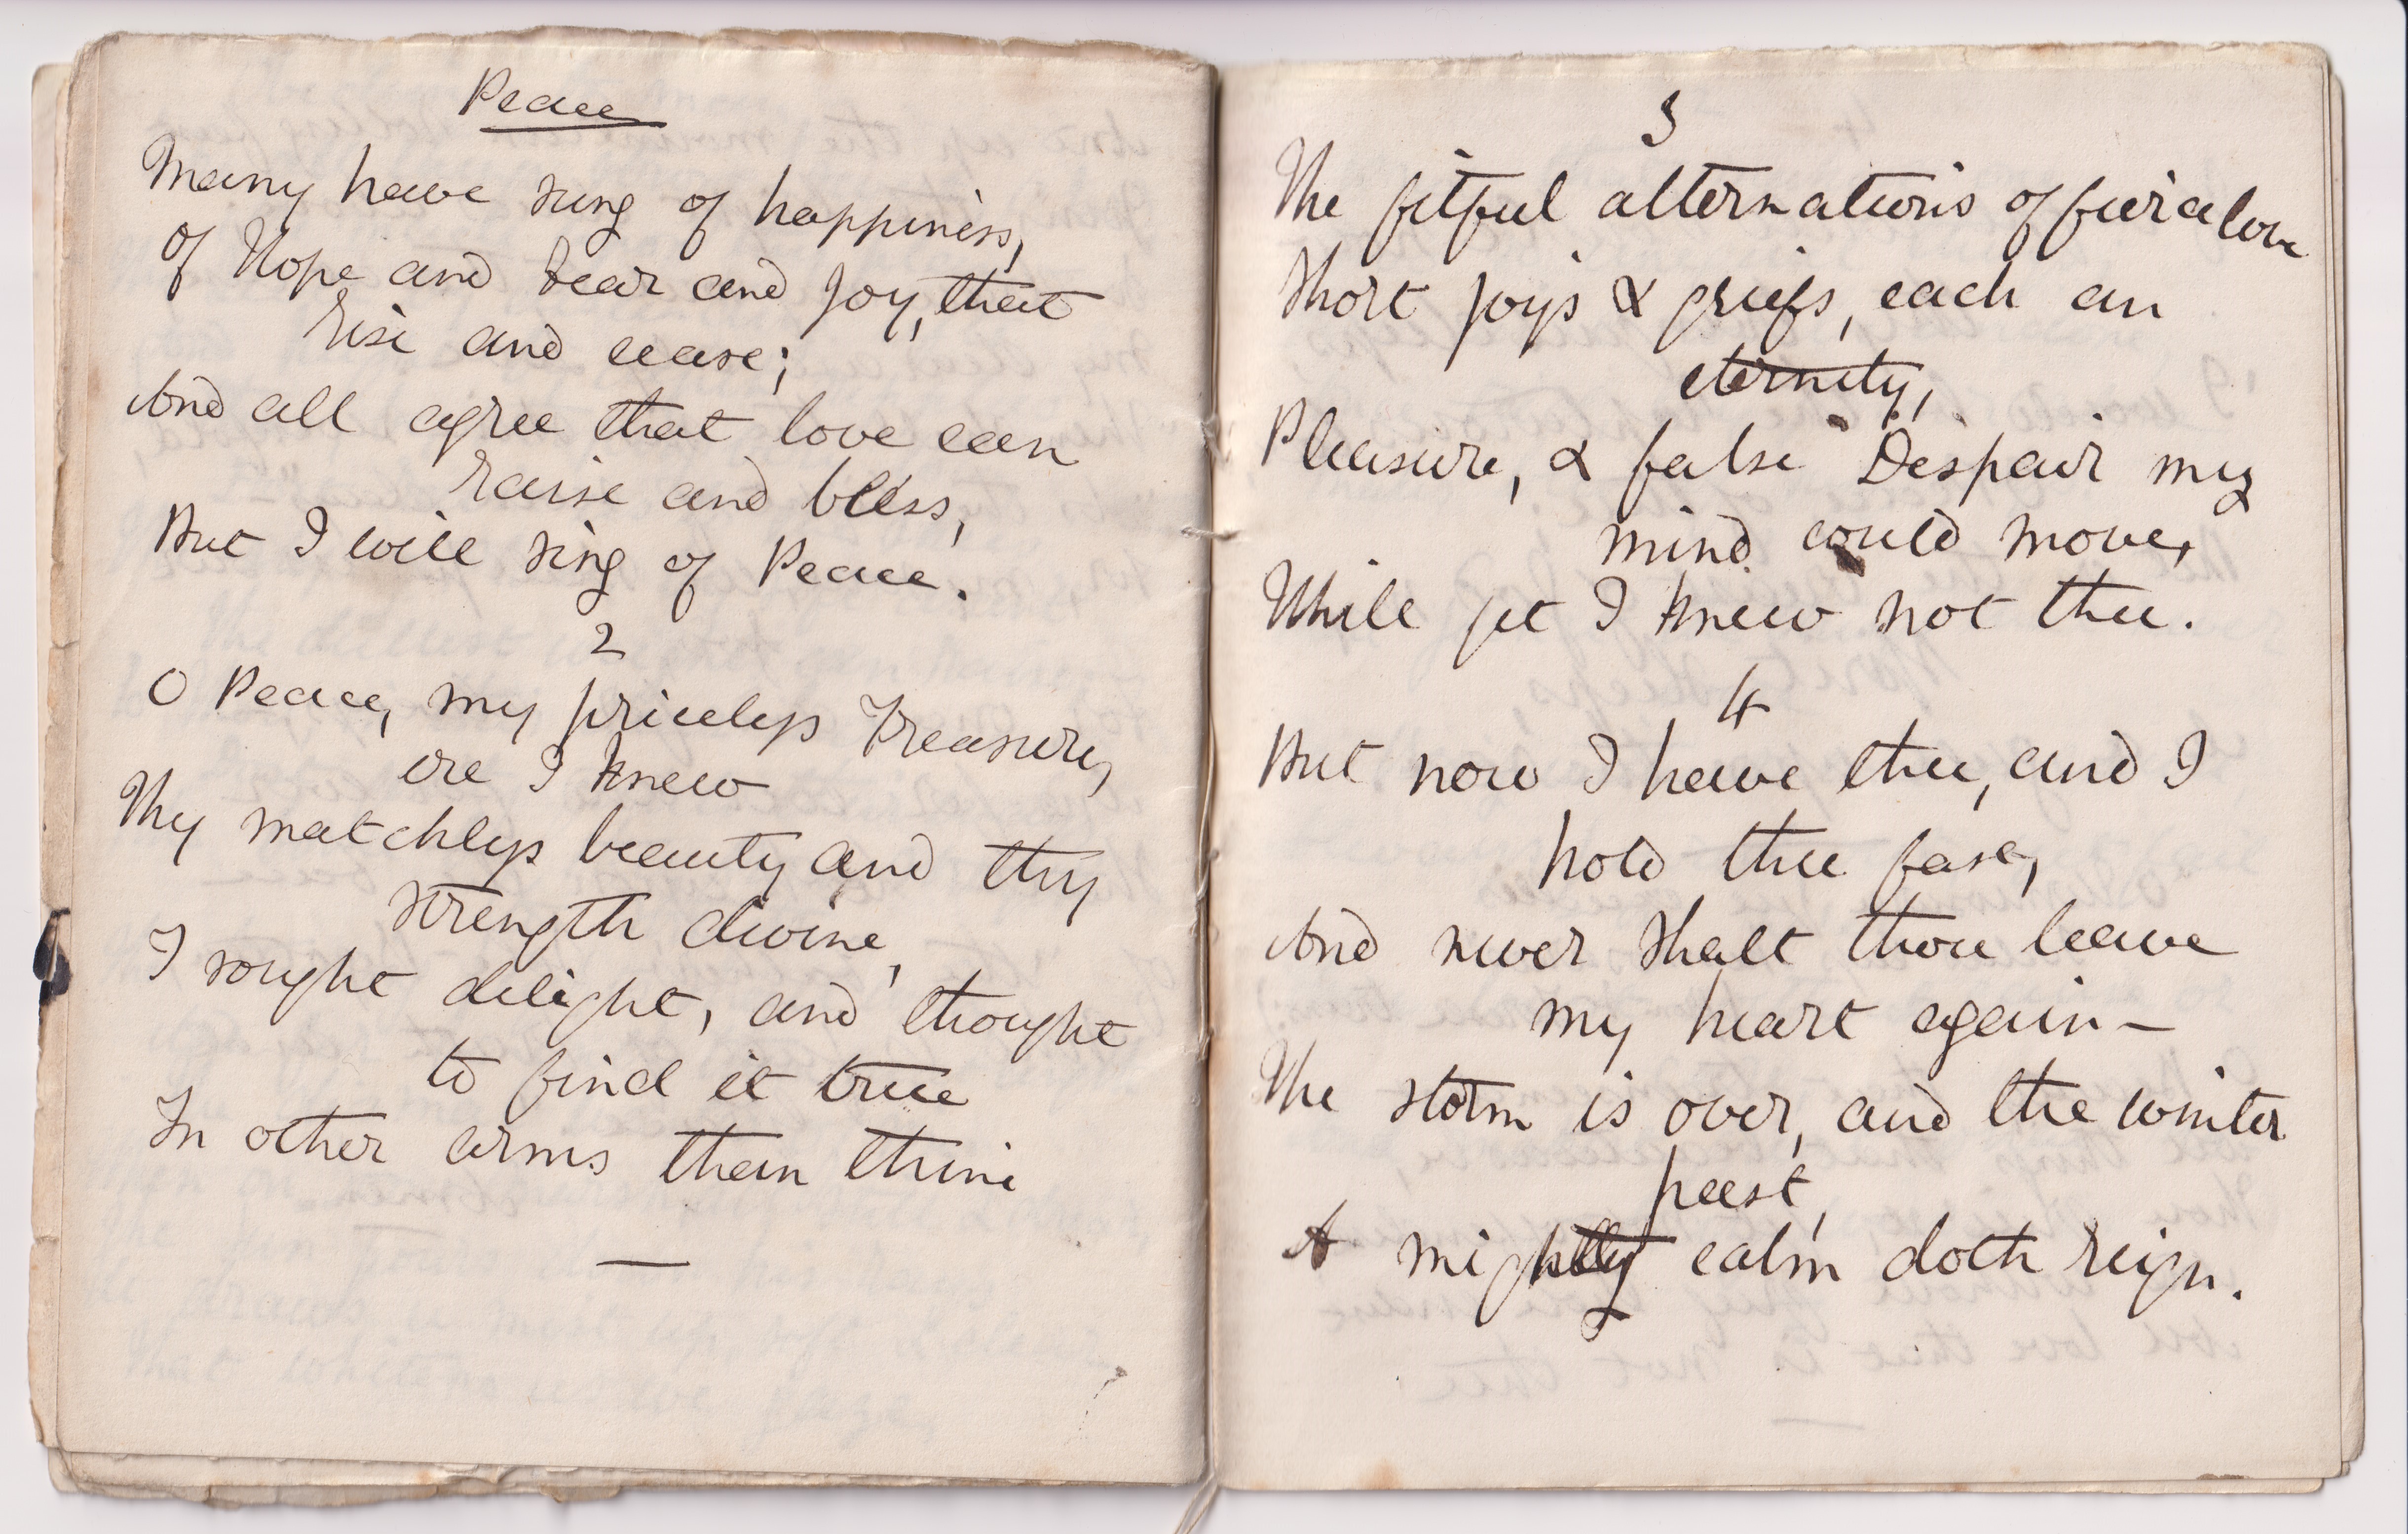 Peace
Many have sung of happiness,
Of Hope and Fear and Joy, that
rise and cease;
And all agree that love can
raise and bless,
But I will sing of Peace.
2
O Peace, my priceless Treasure,
ere I knew
Thy matchless beauty and thy
strength divine,
I sought delight, and thought
to find it true
In other arms than thine
—
3
The fitful alternations of fierce love
Short joys & griefs, each an
eternity,
Pleasure, & false Despair my
mind could move,
While yet I knew not thee.
4
But now I have thee, and I
hold thee fast,
And never shalt thou leave
my heart again—
The storm is over, and the winter
past,
A mighty calm doth reign.